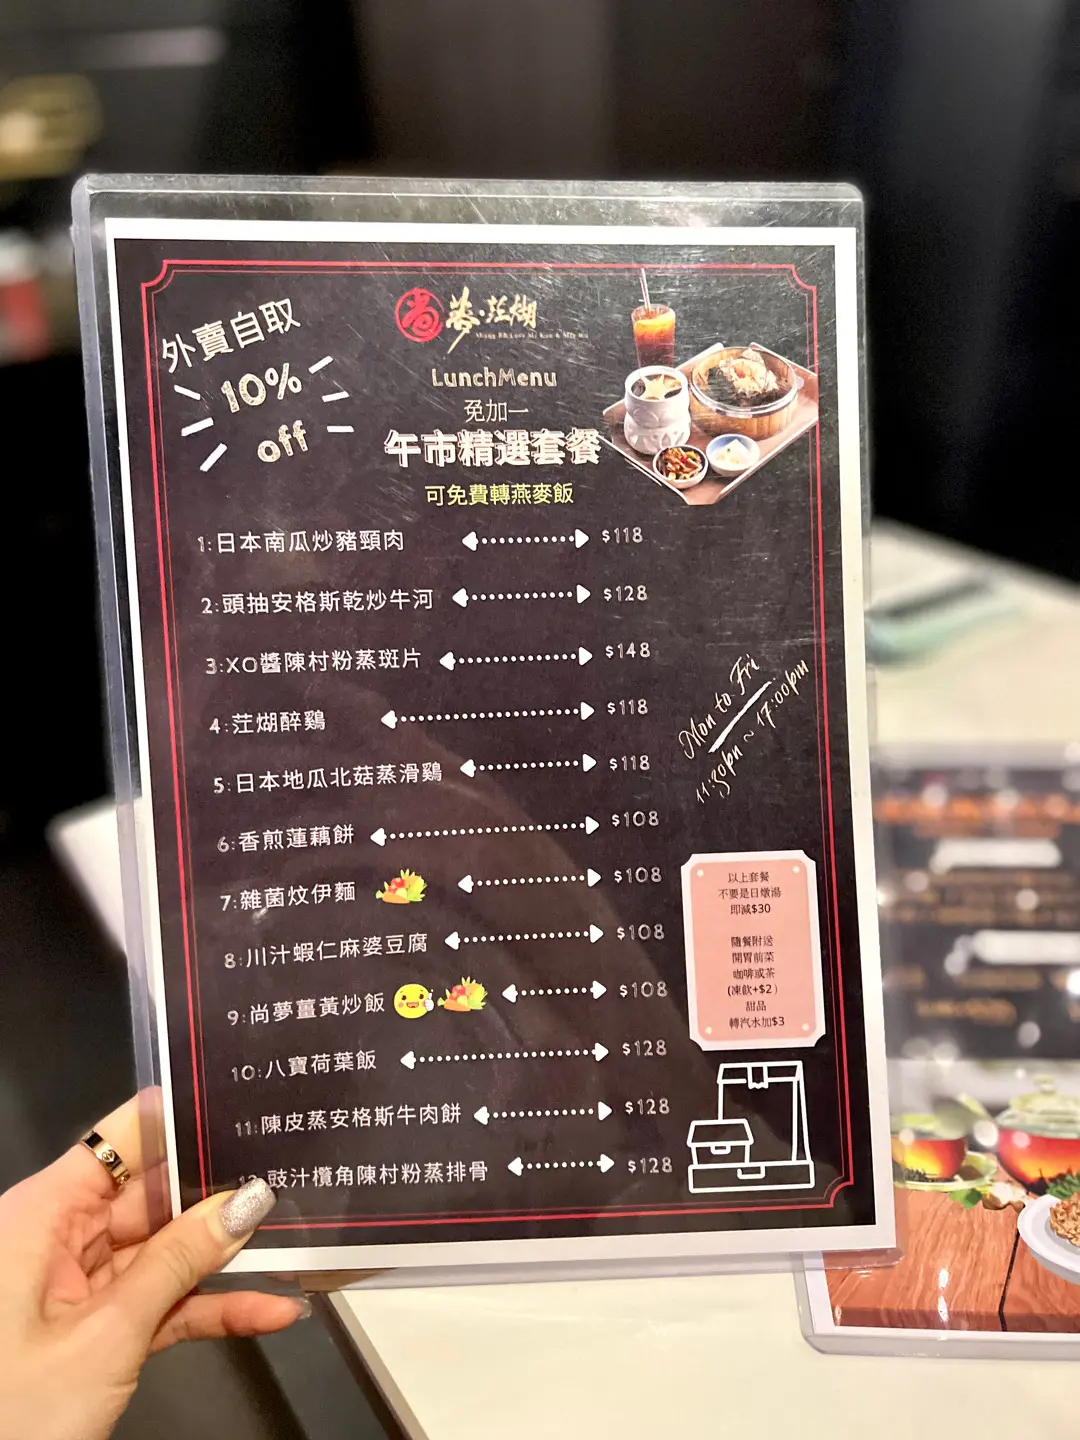 外賣自取
10%
off
尚 夢·茳糊
LunchMenu
免加一
午市精選套餐
可免費轉燕麥飯
1:日本南瓜炒豬頸肉 $118
2:頭抽安格斯乾炒牛河 $128
3:XO醬陳村粉蒸斑片 $148
4:茳糊醉鷄 $118
5:日本地瓜北菇蒸滑鷄 $118
6:香煎蓮藕餅 $108
7:雜菌炆伊麵 $108
8:川汁蝦仁麻婆豆腐 $108
9:尚夢薑黃炒飯 $108
10:八寶荷葉飯 $128
11:陳皮蒸安格斯牛肉餅 $128
12:豉汁欖角陳村粉蒸排骨 $128
Mon to Fri
11:30pm ~ 17:00pm
以上套餐
不要是日燉湯
即減$30
隨餐附送
開胃前菜
咖啡或茶
(凍飲+$2)
甜品
轉汽水加$3